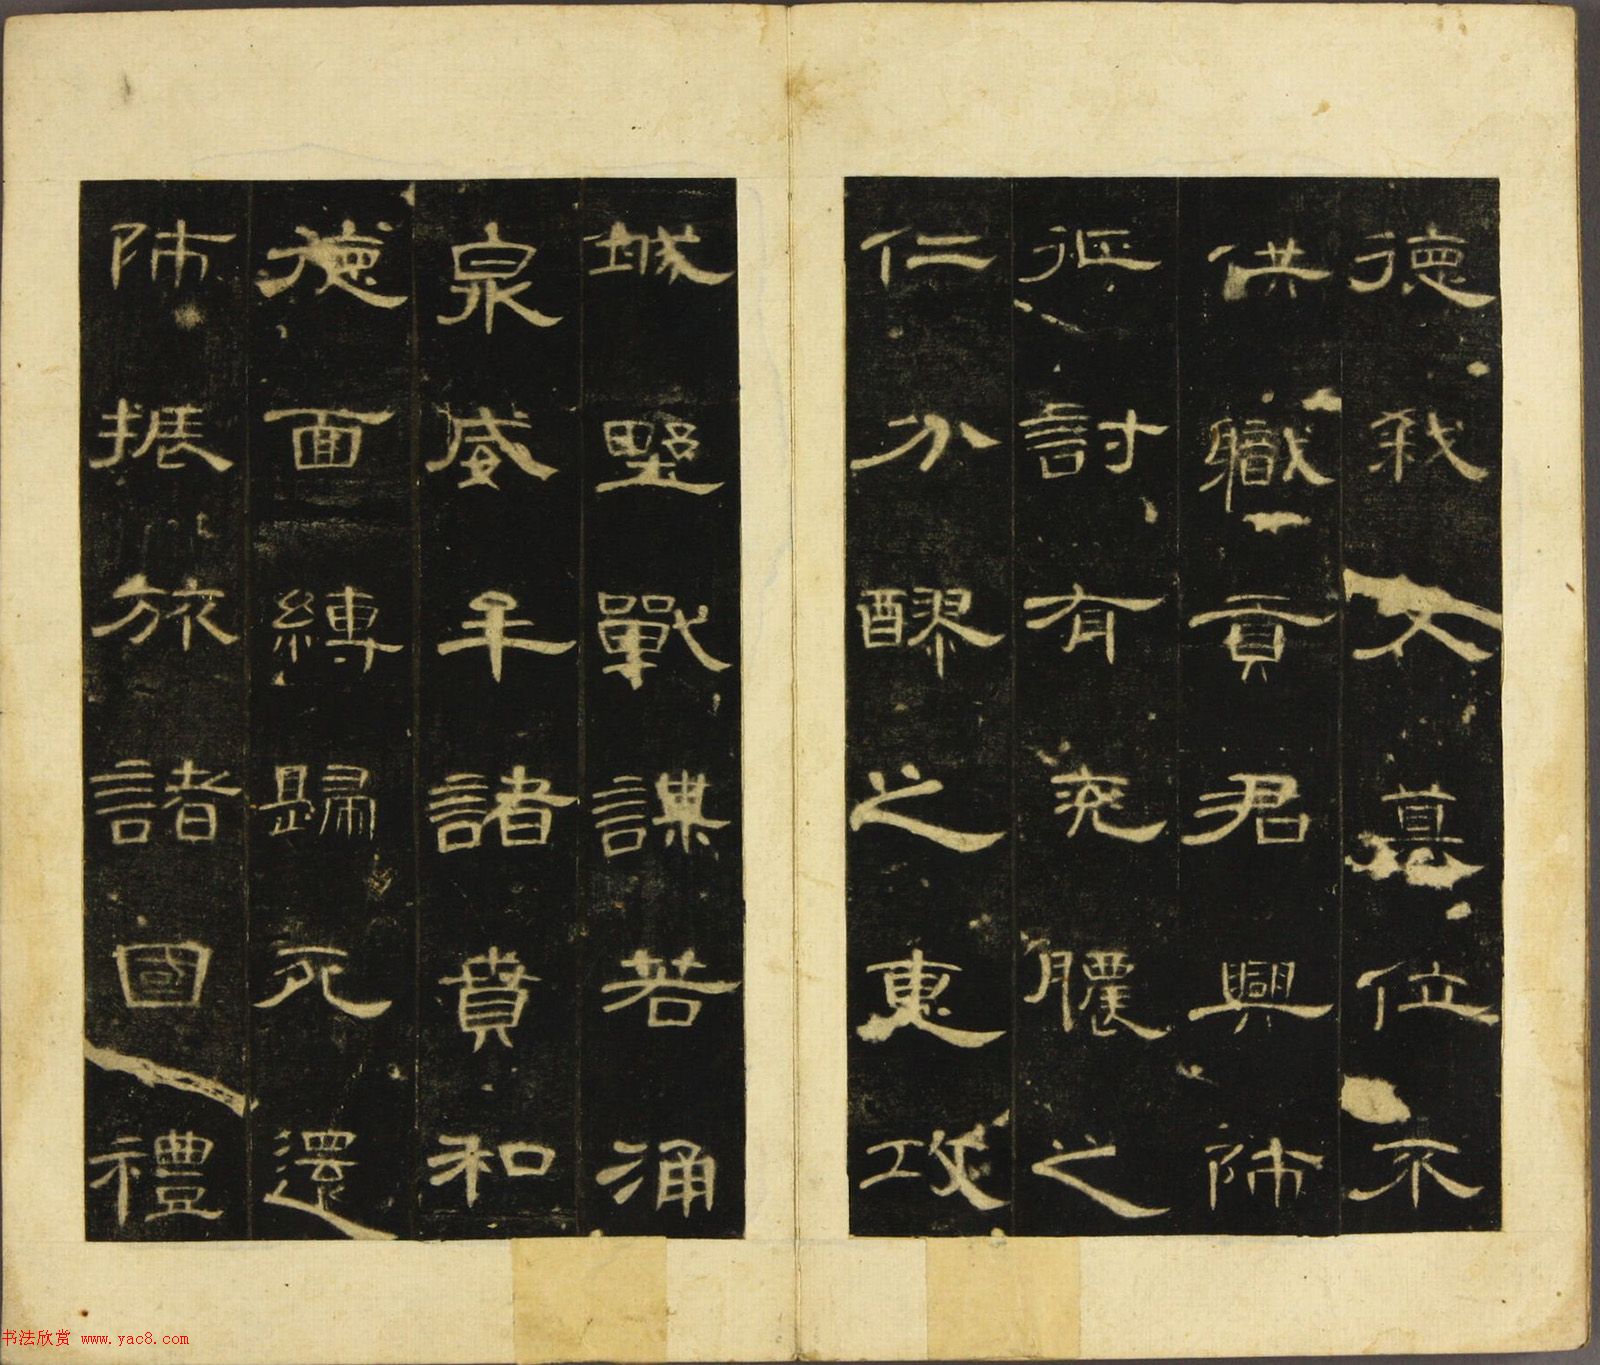 德弒父篡位不
供職貢君興師
征討有兖膿之
仁分醪之惠攻
城野戰謀若涌
泉威牟諸賁和
德面縛歸死還
師振旅諸國禮
书法欣赏 www.yac8.com